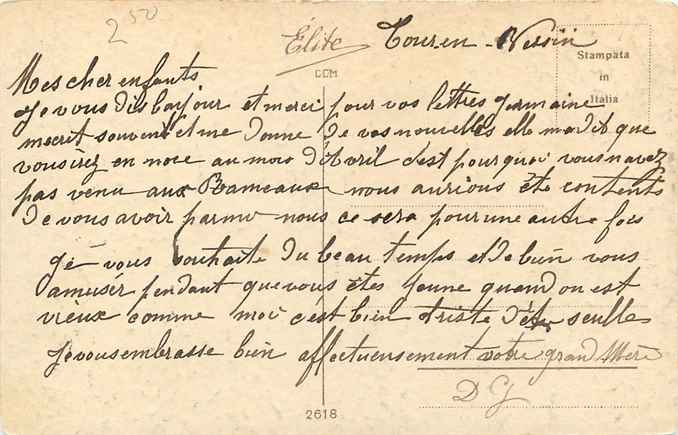 250
Élite Tour en Vexin
CCM
Stampata
in
Italia
Mes cher enfants
Je vous dis bonjour et merci pour vos lettres germaine
mecrit souvent et me donne de vos nouvelles elle ma dit que
vous irez en noce au mois d'Avril c'est pourquoi vous navez
pas venu aux Rameaux nous aurions été contents
de vous avoir parmi nous ce sera pour une autre fois
gé vous souhaite du beau temps et de bien vous
amuser pendant que vous êtes jeune quand on est
vieux comme moi c'est bien triste d'être seulle
Je vous embrasse bien affectueusement votre grand Mère
D G
2618